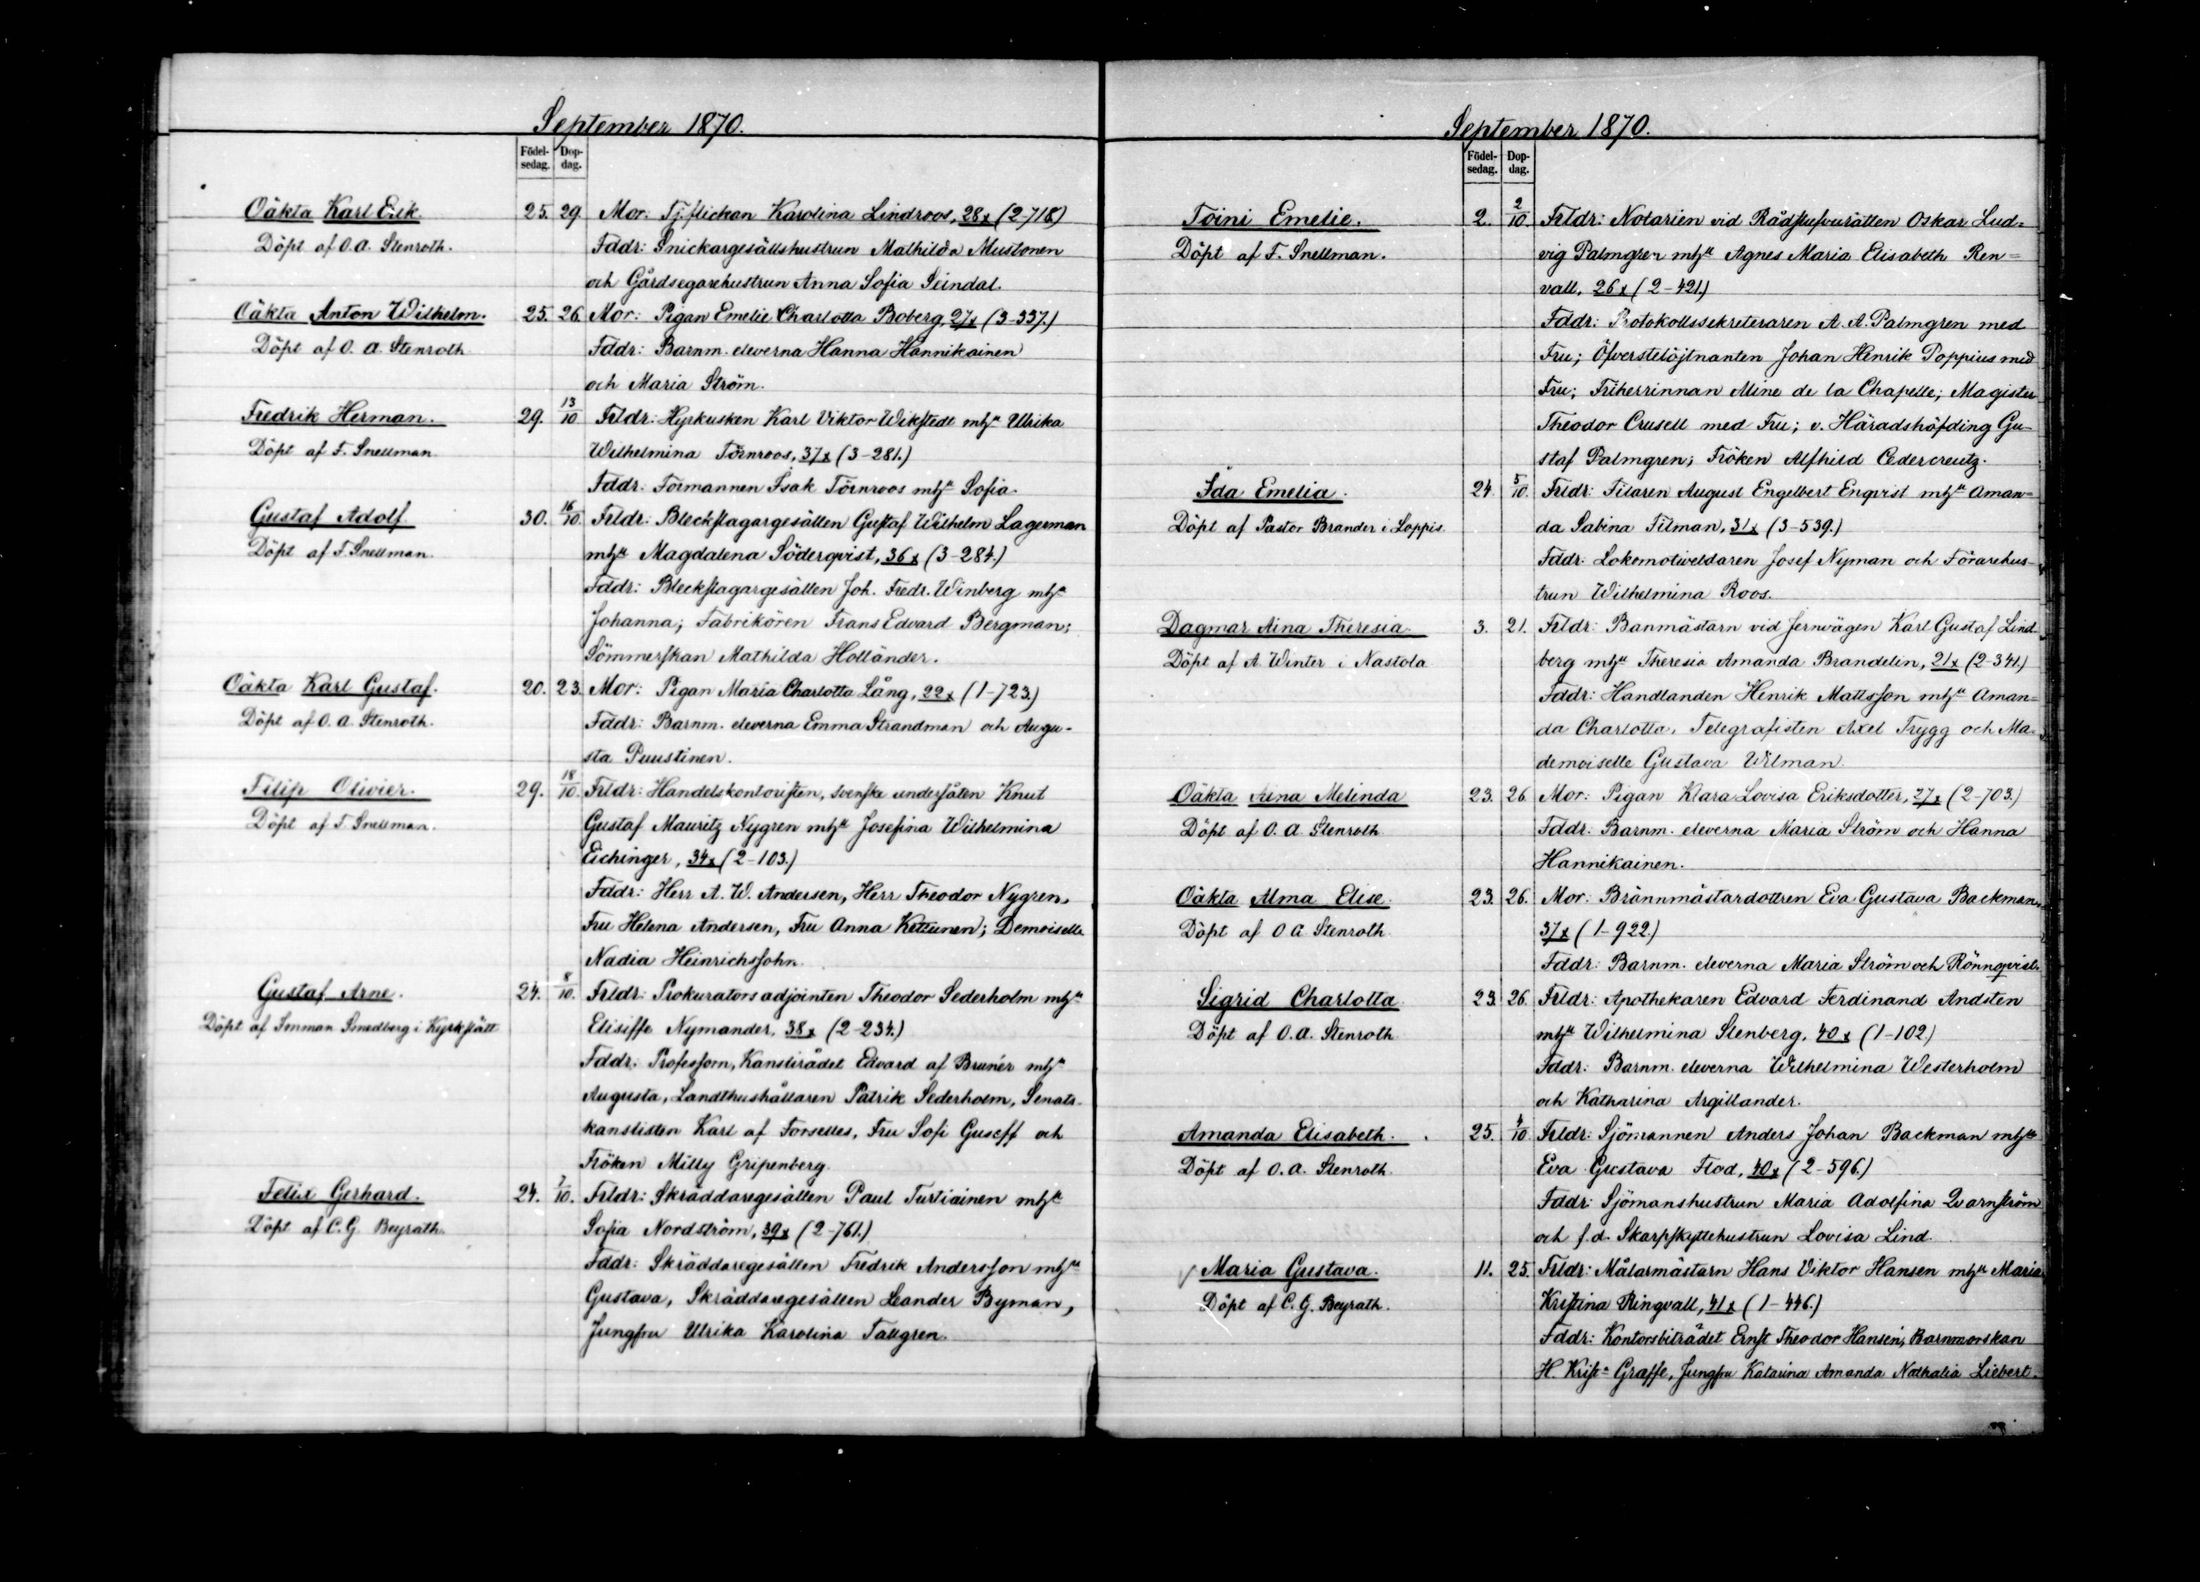 September 1870.
Födel-
sedag.
Dop-
dag.
Oäkta Karl Erik.
Döpt af O. A. Stenroth.
25. 29. Mor: Tj.flickan Karolina Lindroos, 28x (2-718)
Fddr: Snickargesällshustrun Mathilda Mustonen
och Gårdsegarehustrun Anna Sofia Seindal.
Oäkta Anton Wilhelm.
Döpt af O. A. Stenroth
25. 26. Mor: Pigan Emelie Charlotta Boberg, 27x (3-337.)
Fddr: Barnm. eleverna Hanna Hannikainen
och Maria Ström.
Fredrik Herman.
Döpt af F. Snellman
29. 13/10 Frldr: Hyrkusken Karl Viktor Wikstedt mh Ulrika
Wilhelmina Törnroos, 37x (3-281.)
Fddr: Formannen Isak Törnroos mh Sofia.
Gustaf Adolf
Döpt af F. Snellman.
30. 16/10. Frldr: Bleckslagargesällen Gustaf Wilhelm Lagerman
mh Magdalena Söderqvist, 36x (3-284.)
Fddr: Bleckslagargesällen Joh. Fredr. Winberg mh
Johanna; Fabrikören Frans Edvard Bergman;
Sömmerskan Mathilda Holländer.
Oäkta Karl Gustaf.
Döpt af O. A. Stenroth.
20. 23. Mor: Pigan Maria Charlotta Lång, 22x (1-723.)
Fddr: Barnm. eleverna Emma Strandman och Augu-
sta Puustinen.
Filip Olivier.
Döpt af F. Snellman.
29. 18/10. Frldr: Handelskontoristen, svenske undersåten Knut
Gustaf Mauritz Nygren mh Josefina Wilhelmina
Eichinger, 34x (2-103.)
Fddr: Herr A. W. Andersen, Herr Theodor Nygren,
Fru Helena Andersen, Fru Anna Kettunen; Demoiselle
Nadia Heinrichssohn.
Gustaf Arne.
Döpt af Smedberg i Kyrkslätt
24. 8/10. Frldr: Prokuratorsadjointen Theodor Sederholm mh
Elisiffe Nymander, 38x (2-234.)
Fddr: Professorn, Kanslirådet Edvard af Brunér mh
Augusta, Landthushållaren Patrik Sederholm, Senats-
kanslisten Karl af Forselles, Fru Sofi Guseff och
Fröken Milly Gripenberg.
Felix Gerhard.
Döpt af C. G. Beyrath.
24. 7/10. Frldr: Skräddaregesällen Paul Turtiainen mh
Sofia Nordström, 39x (2-761.)
Fddr: Skräddaregesällen Fredrik Andersson mh
Gustava, Skräddaregesällen Leander Byman,
Jungfru Ulrika Karolina Tallgren.
September 1870.
Födel-
sedag.
Dop-
dag.
Toini Emelie.
Döpt af F. Snellman.
2. 2/10. Frldr: Notarien vid Rådstufvurätten Oskar Lud=
vig Palmgren mh Agnes Maria Elisabeth Ren=
vall, 26x (2-421.)
Fddr: Protokollssekreteraren A. A. Palmgren med
Fru; Öfverstelöjtnanten Johan Henrik Poppius med
Fru; Friherrinnan Mine de la Chapelle; Magister
Theodor Crusell med Fru; v. Häradshöfding Gu-
staf Palmgren; Fröken Alfhild Cedercreutz.
Ida Emelia.
Döpt af Pastor Brander i Loppis
24. 5/10. Frldr: Filaren August Engelbert Enqvist mh Aman=
da Sabina Tilman, 31x (3-539.)
Fddr: Lokomotiveldaren Josef Nyman och Förarehus-
trun Wilhelmina Roos.
Dagmar Aina Theresia.
Döpt af A. Winter i Nastola
3. 21. Frldr: Banmästarn vid Jernvägen Karl Gustaf Lind-
berg mh Theresia Amanda Brandelin, 21x (2-341.)
Fddr: Handlanden Henrik Mattsson mh Aman=
da Charlotta, Telegrafisten Axel Trygg och Ma-
demoiselle Gustava Wilman.
Oäkta Aina Melinda
Döpt af O. A. Stenroth
23. 26. Mor: Pigan Klara Lovisa Eriksdotter, 27x (2-703.)
Fddr: Barnm. eleverna Maria Ström och Hanna
Hannikainen.
Oäkta Alma Elise.
Döpt af O A. Stenroth.
23. 26. Mor: Brännmästardottren Eva Gustava Backman,
37x (1-922.)
Fddr: Barnm. eleverna Maria Ström och Rönnqvist.
Sigrid Charlotta
Döpt af O. A. Stenroth
23. 26. Frldr: Apothekaren Edvard Ferdinand Andsten
mh Wilhelmina Stenberg, 40x (1-102)
Fddr: Barnm. eleverna Wilhelmina Westerholm
och Katharina Argillander.
Amanda Elisabeth.
Döpt af O. A. Stenroth
25. 4/10. Frldr: Sjömannen Anders Johan Backman mh
Eva Gustava Flod, 40x (2-596.)
Fddr: Sjömanshustrun Maria Adolfina Qvarnström
och f.d. Skarpskyttehustrun Lovisa Lind.
Maria Gustava.
Döpt af C. G. Beyrath.
11. 25. Frldr: Målarmästarn Hans Viktor Hansen mh Maria
Kristina Ringvall, 41x (1-446.)
Fddr: Kontorsbiträdet Ernst Theodor Hansen, Barnmorskan
H. Krist:a Graffe, Jungfru Katarina Amanda Nathalia Liebert.